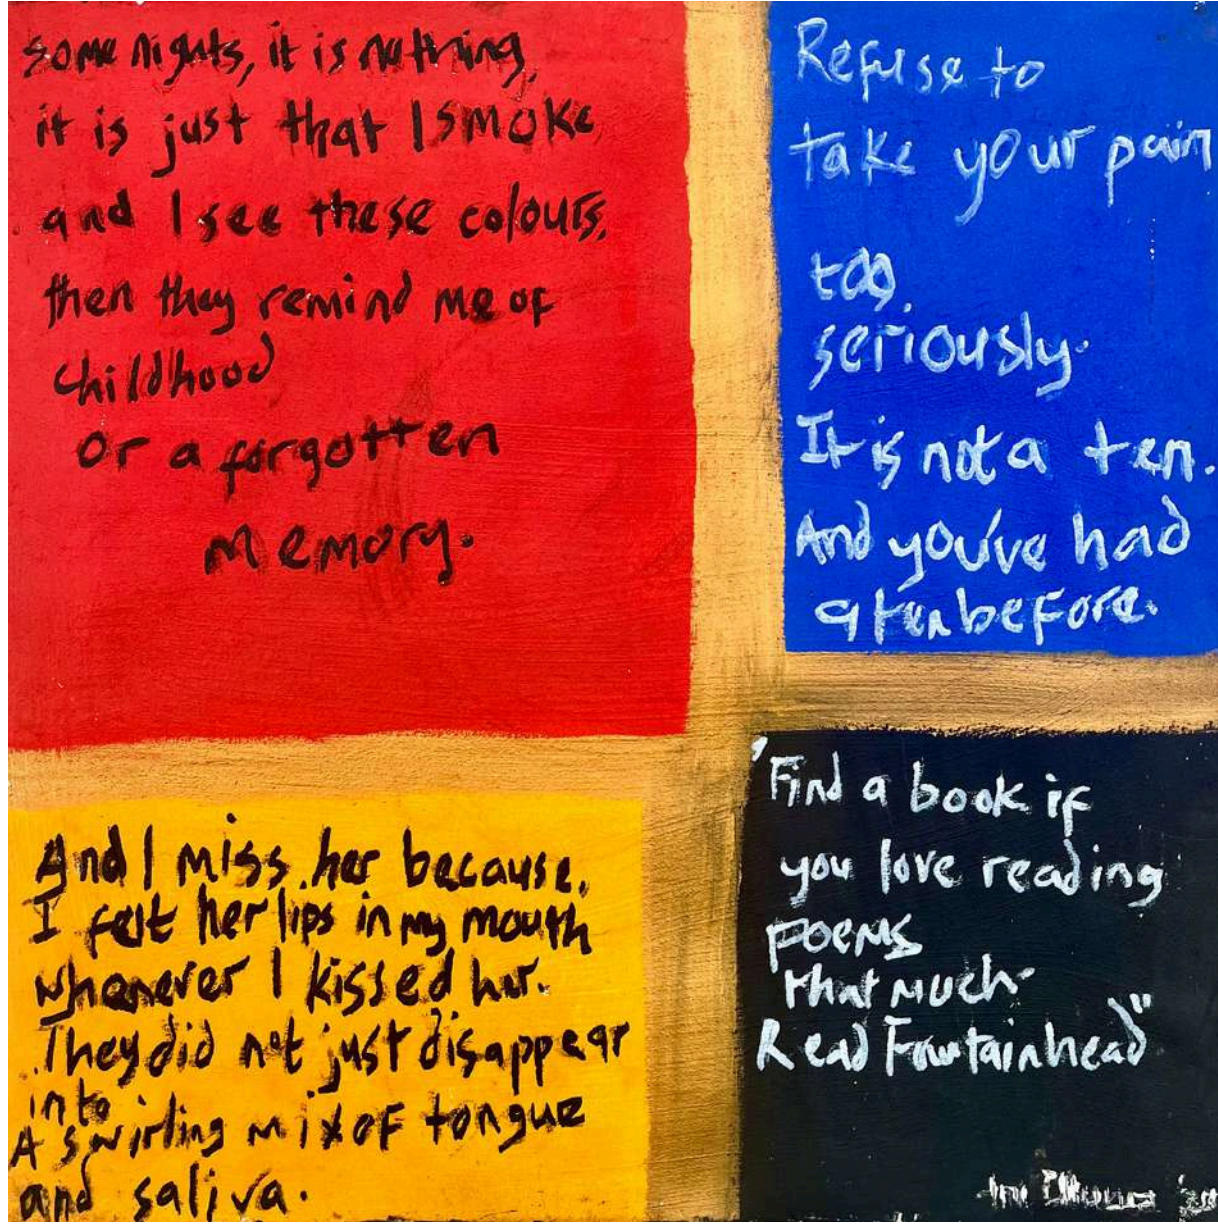 some nights, it is nothing,
it is just that I smoke
and I see these colours,
then they remind me of
childhood
Or a forgotten
memory.
Refuse to
take your pain
too
seriously.
It is not a ten.
And you've had
a ten before.
And I miss her because,
I felt her lips in my mouth
whenever I kissed her.
They did not just disappear
into
A swirling mix of tongue
and saliva.
'Find a book if
you love reading
poems
that much
Read Fountainhead"